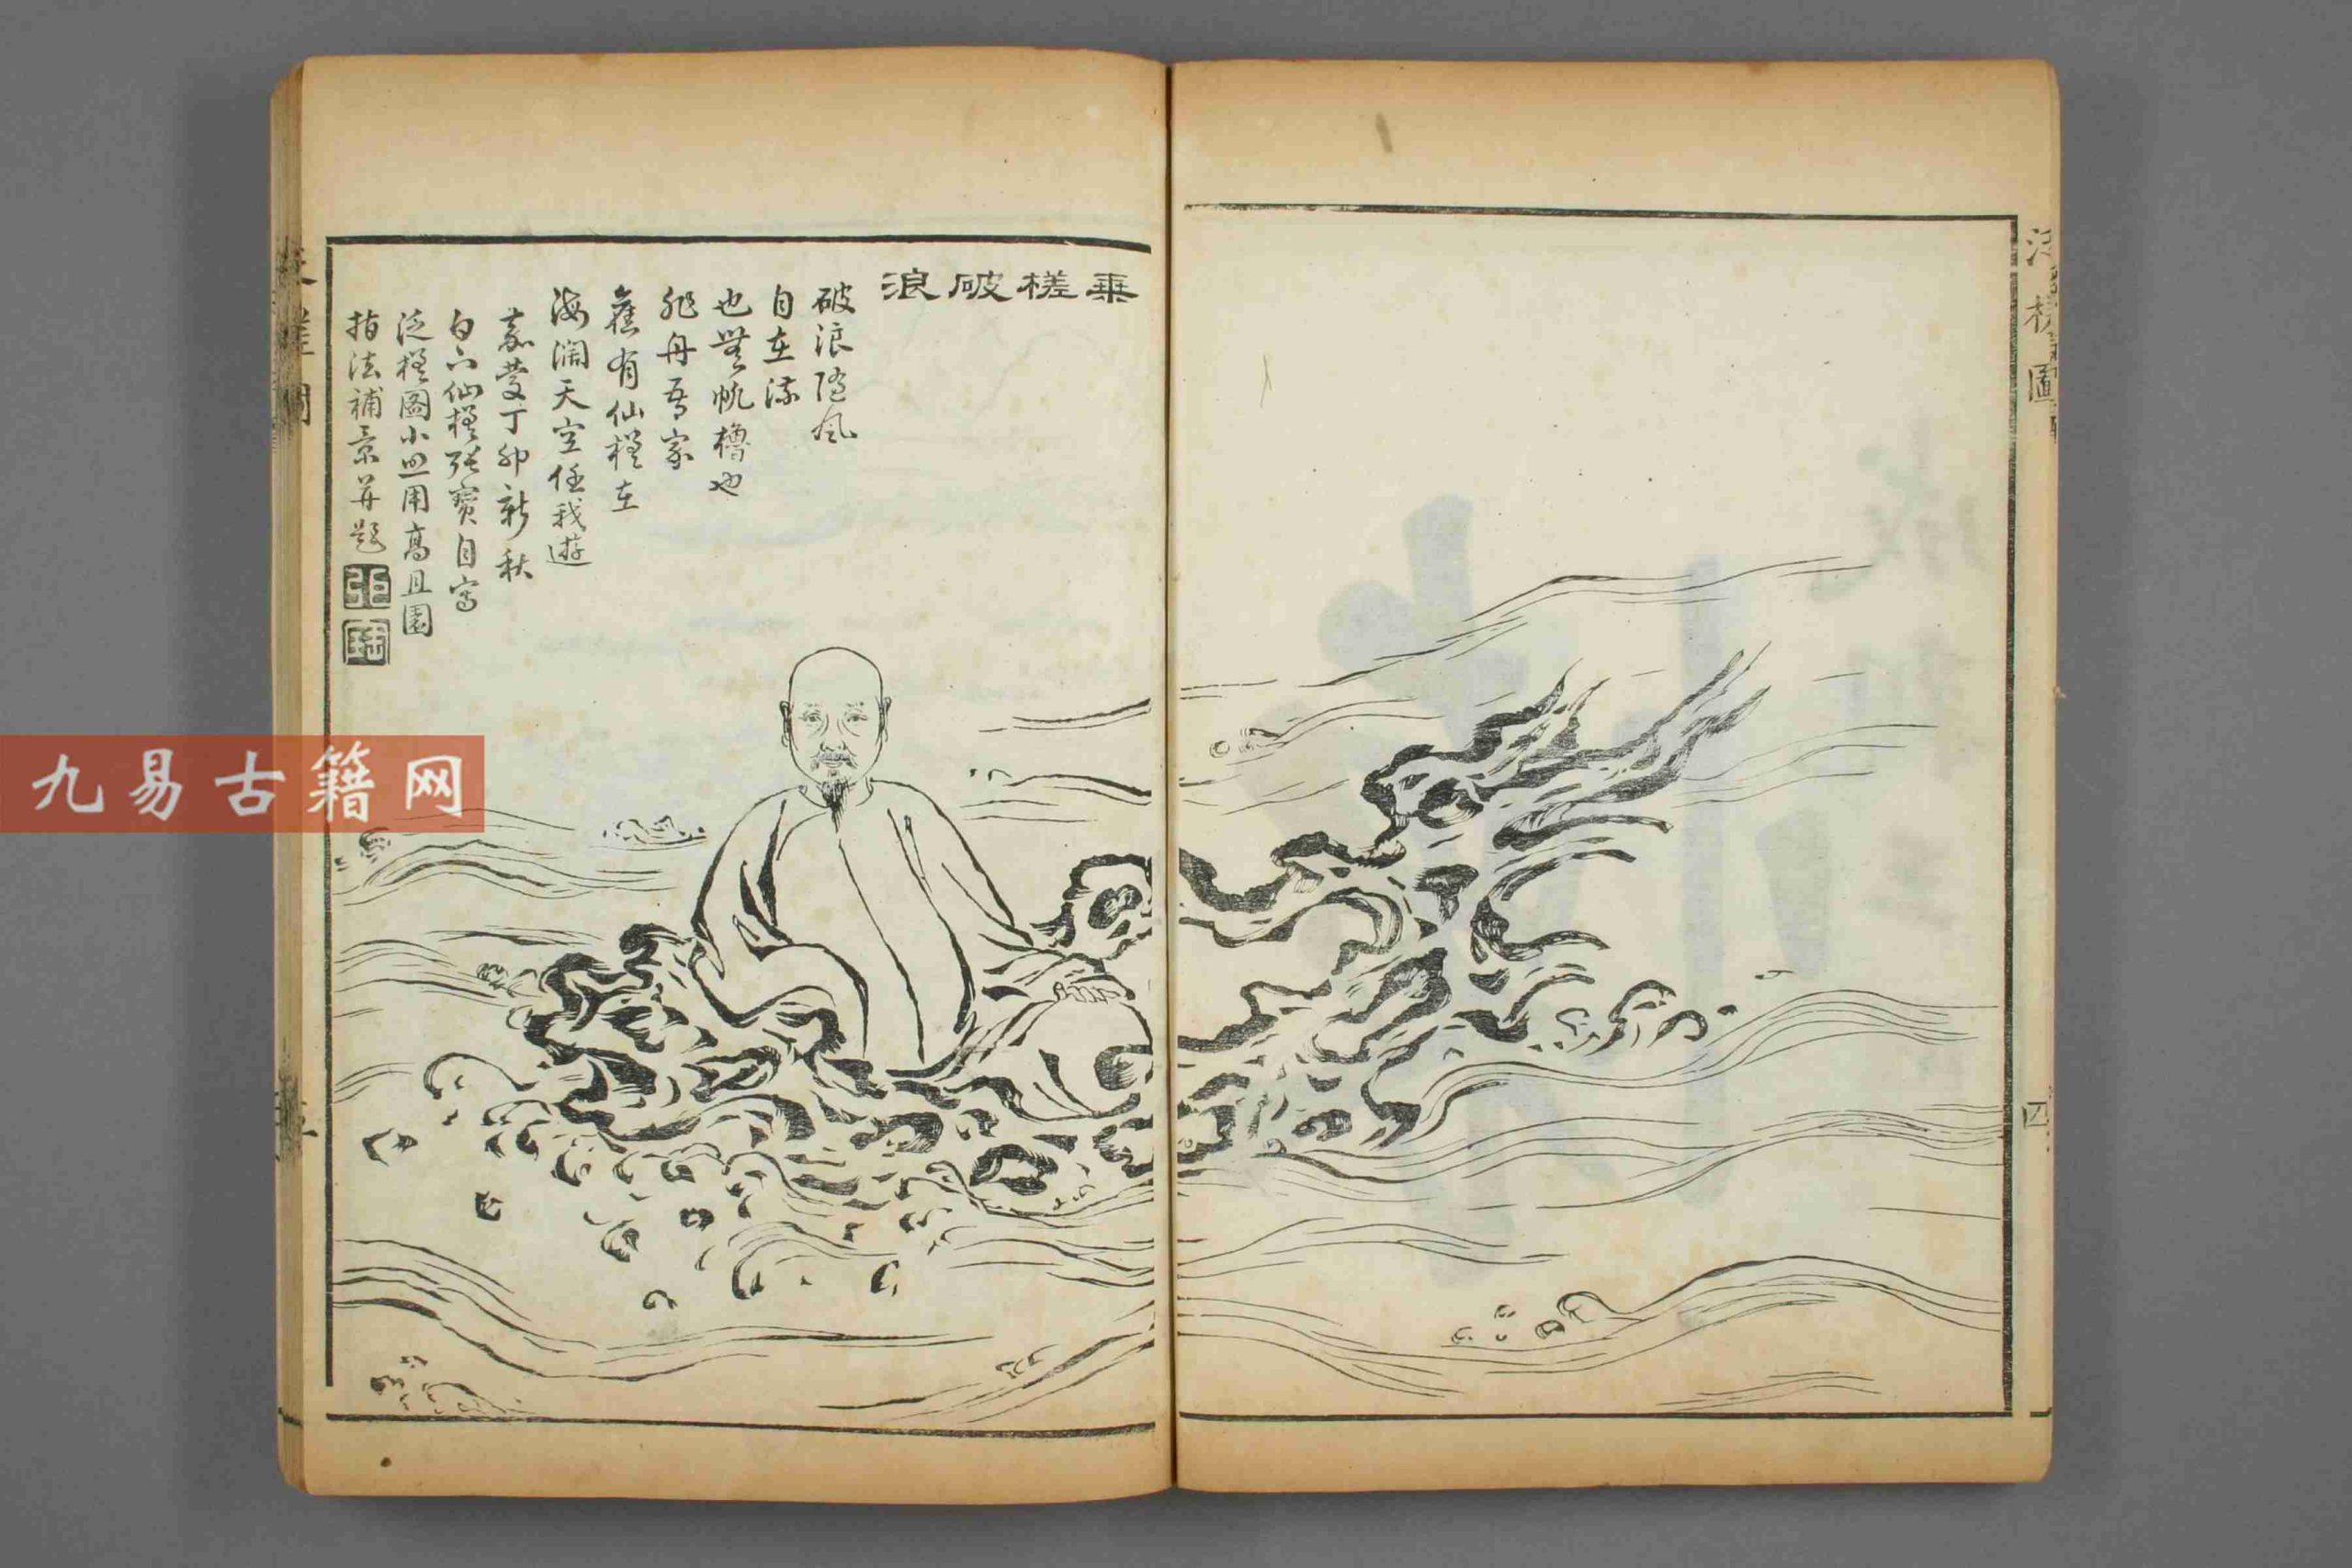 乗槎破浪
破浪隨風
自在流
也無帆櫓也
非舟吾家
舊有仙槎在
海濶天空任我遊
嘉慶丁卯新秋
白下仙槎張寶自寫
泛槎圖小照用高且園
指法補景并題
張
寶
泛槎圖
四
九易古籍网